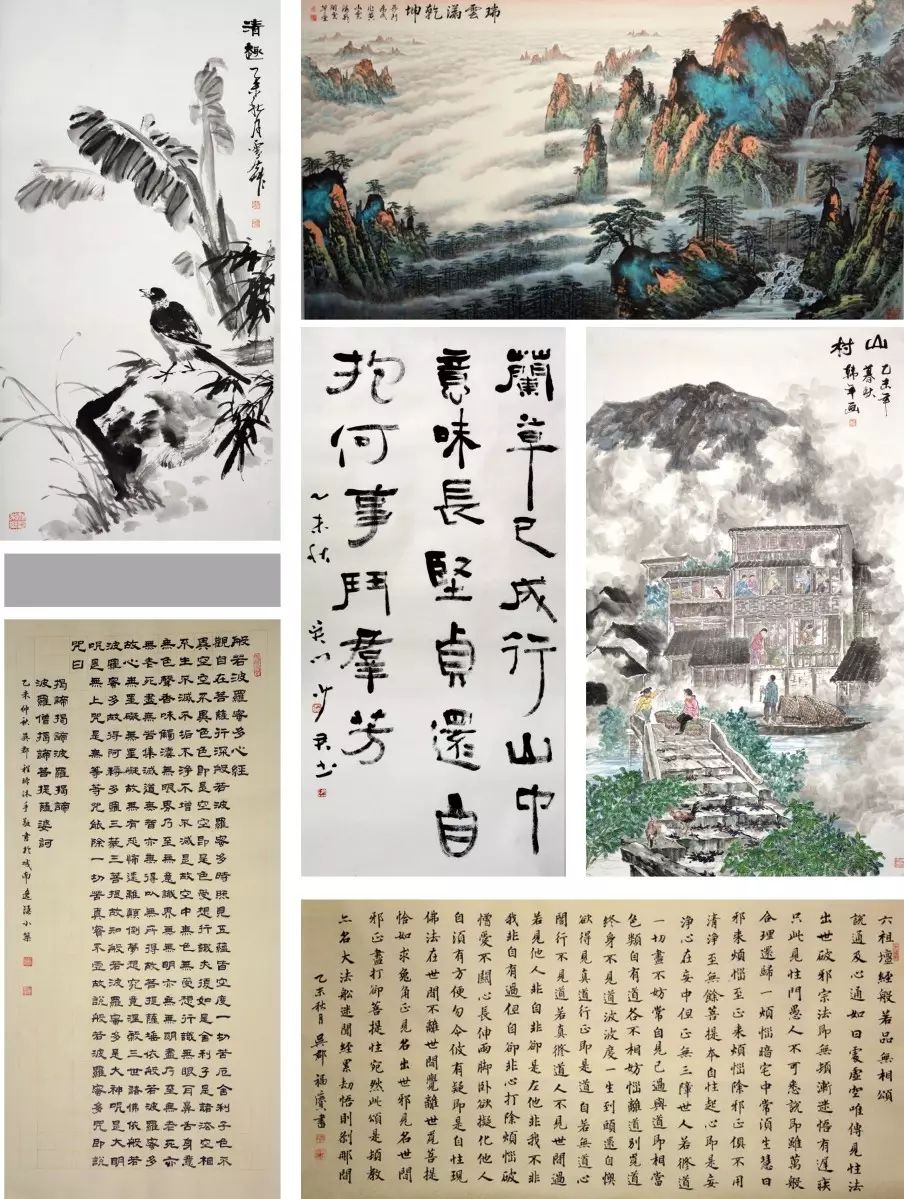 清趣
乙未秋月
瑞雲滿乾坤
蘭草已成行山中
意味長堅貞還自
抱何事鬥羣芳
乙未秋
山村
乙未年
暮秋
韓年画
般若波羅蜜多心經
觀自在菩薩行深般若波羅蜜多時照見五蘊皆空度一切苦厄舍利子色不
異空空不異色色即是空空即是色受想行識亦復如是舍利子是諸法空相
不生不滅不垢不淨不增不減是故空中無色無受想行識無眼耳鼻舌身意
無色聲香味觸法無眼界乃至無意識界無無明亦無無明盡乃至無老死亦
無老死盡無苦集滅道無智亦無得以無所得故菩提薩埵依般若波羅蜜多
故心無罣礙無罣礙故無有恐怖遠離顛倒夢想究竟涅槃三世諸佛依般若
波羅蜜多故得阿耨多羅三藐三菩提故知般若波羅蜜多是大神呪是大明
呪是無上呪是無等等呪能除一切苦真實不虛故說般若波羅蜜多呪即說
呪曰
揭諦揭諦波羅揭諦
波羅僧揭諦菩提薩婆訶
乙未仲秋吳郡程沐手敬書於城南小築
六祖壇經般若品無相頌
說通及心通如日處虛空唯傳見性法
出世破邪宗法即無頓漸迷悟有遲疾
只此見性門愚人不可悉說即雖萬般
合理還歸一煩惱暗宅中常須生慧日
邪來煩惱至正來煩惱除邪正俱不用
清淨至無餘菩提本自性起心即是妄
淨心在妄中但正無三障世人若修道
一切盡不妨常自見己過與道即相當
色類自有道各不相妨惱離道別覓道
終身不見道波波度一生到頭還自懊
欲得見真道行正即是道自若無道心
闇行不見道若真修道人不見世間過
若見他人非自非卻是左他非我不非
我非自有過但自卻非心打除煩惱破
憎愛不關心長伸兩脚臥欲擬化他人
自須有方便勿令彼有疑即是自性現
佛法在世間不離世間覺離世覓菩提
恰如求兔角正見名出世邪見名世間
邪正盡打卻菩提性宛然此頌是頓教
亦名大法船迷聞經累劫悟則剎那間
乙未秋月吳郡福慶書